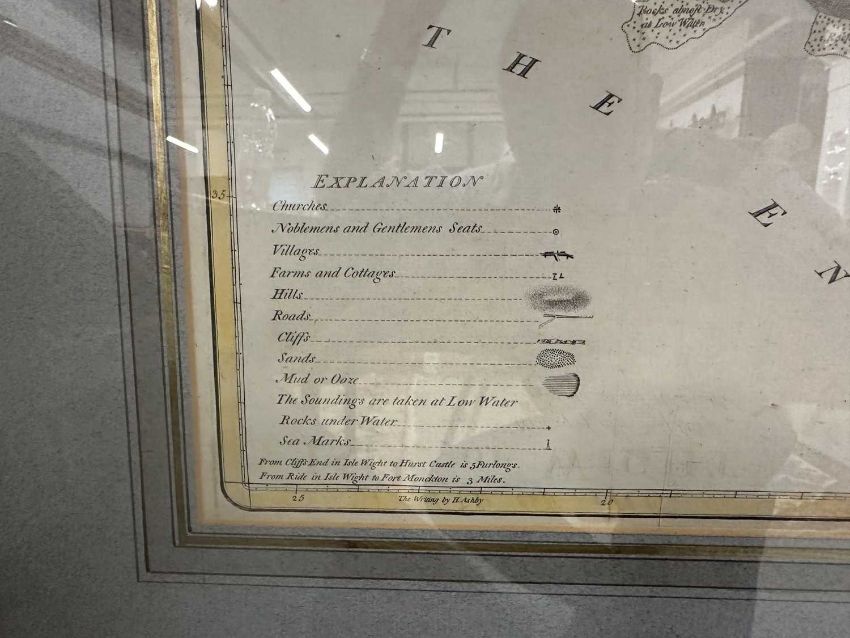 Rocks almost Dry
at Low Water
T H E
E N
EXPLANATION
35
Churches
Noblemens and Gentlemens Seats
Villages
Farms and Cottages
Hills
Roads
Cliffs
Sands
Mud or Ooze
The Soundings are taken at Low Water
Rocks under Water
Sea Marks
From Cliffs End in Isle Wight to Hurst Castle is 5 Furlongs.
From Ride in Isle Wight to Fort Monckton is 3 Miles.
25
The Writing by H. Ashby
20